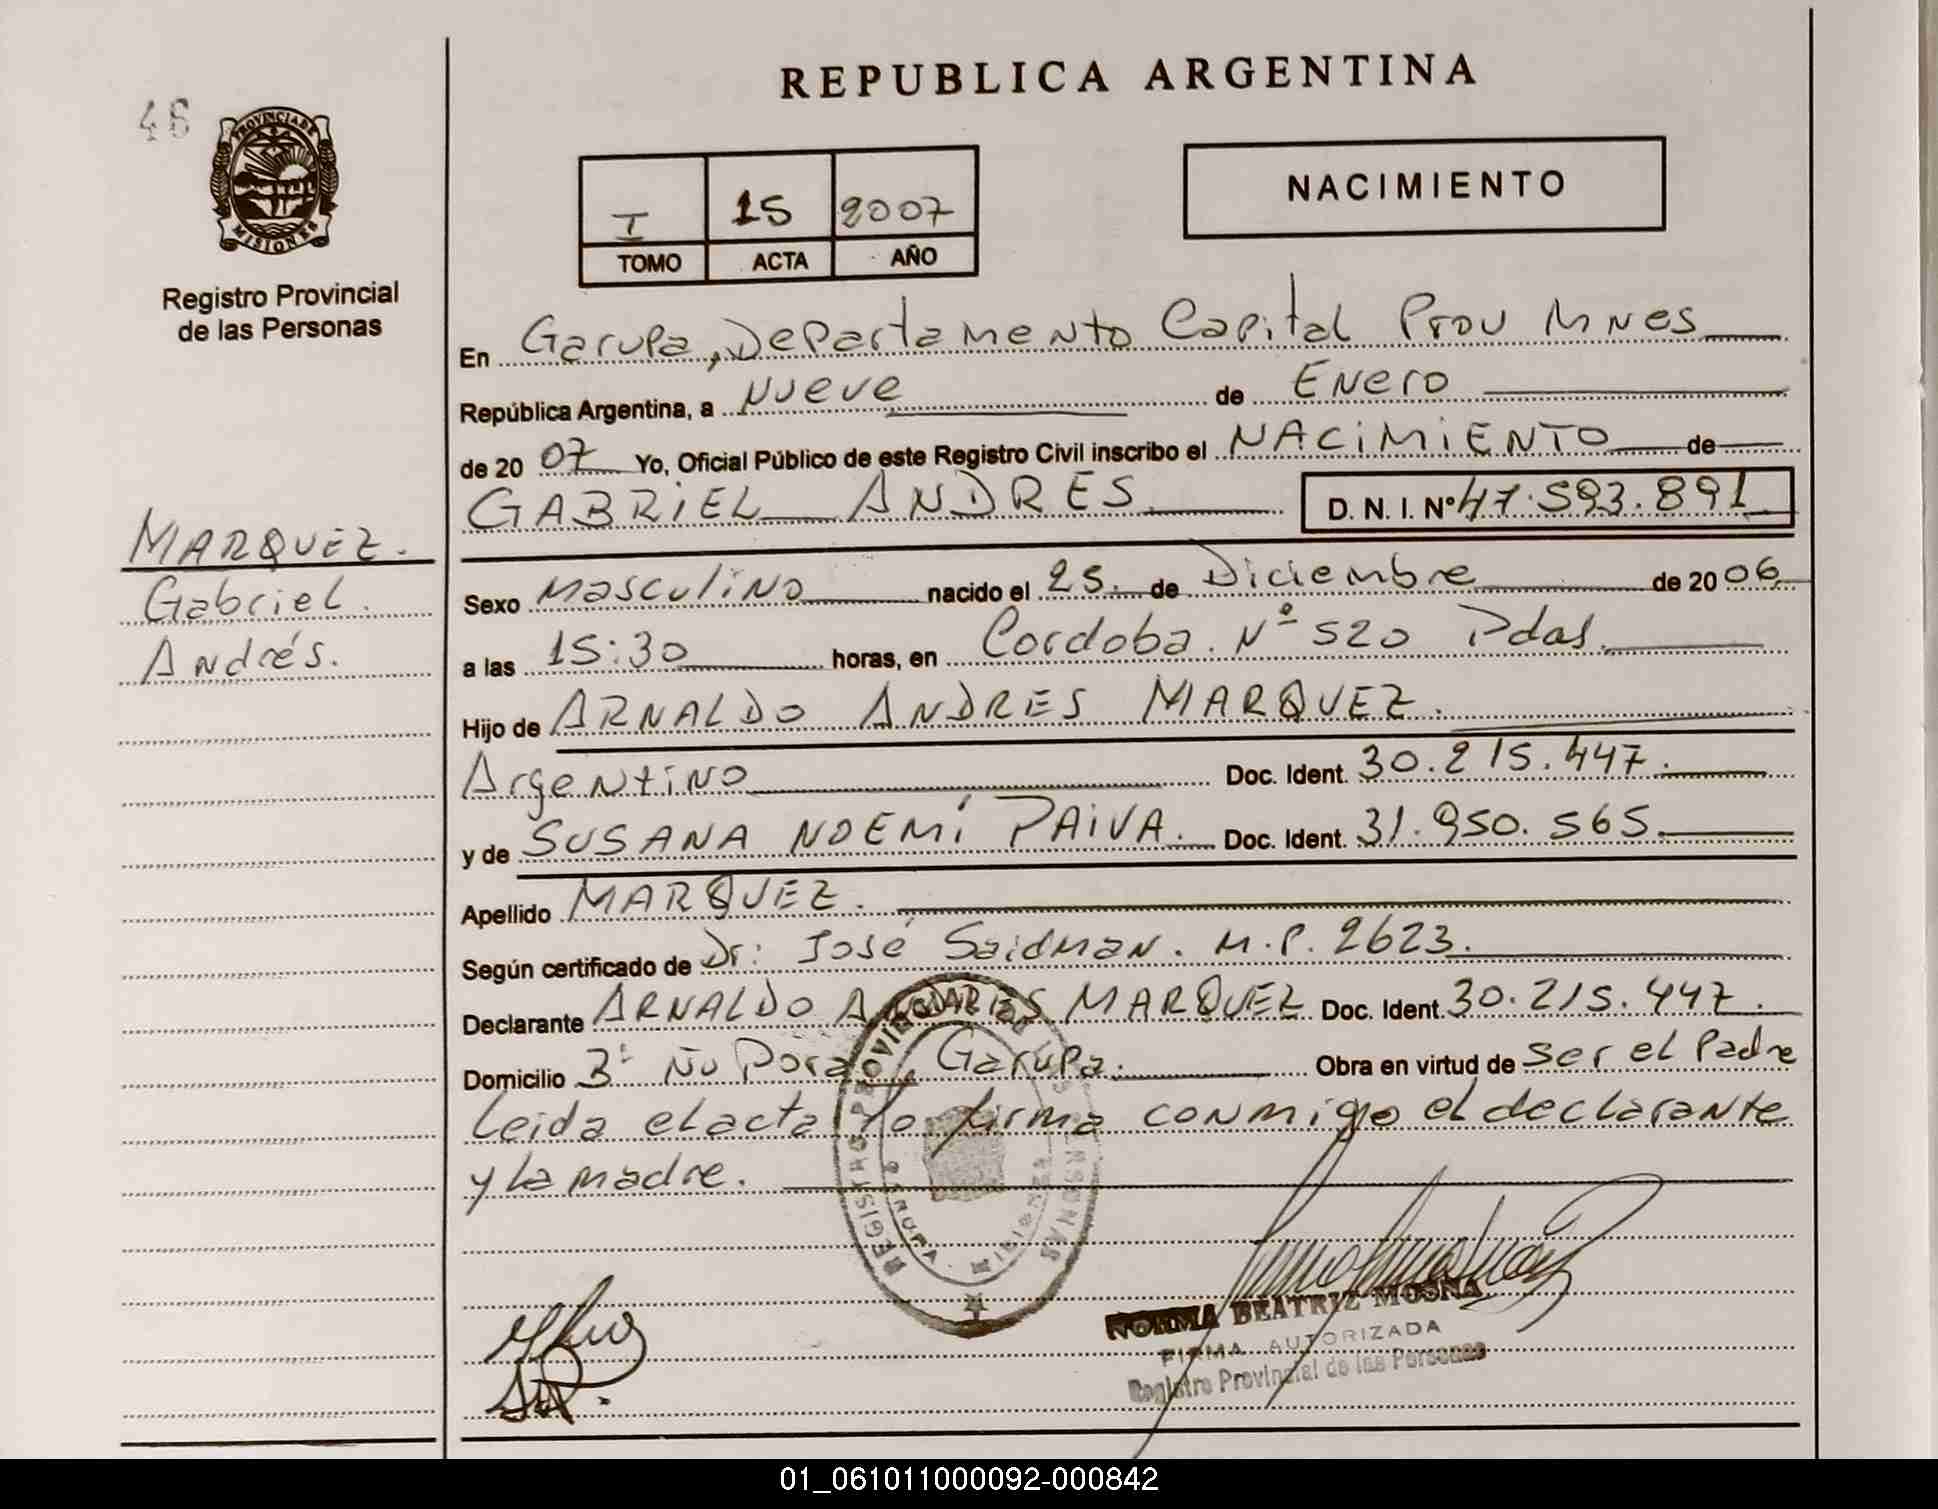 REPUBLICA ARGENTINA
46
PROVINCIA DE
MISIONES
Registro Provincial
de las Personas
I 15 2007
TOMO ACTA AÑO
NACIMIENTO
En Garupa, Departamento Capital Prov Mnes
República Argentina, a Nueve de Enero
de 2007 Yo, Oficial Público de este Registro Civil inscribo el NACIMIENTO de
GABRIEL ANDRES D. N. I. Nº 47.593.891
MARQUEZ.
Gabriel.
Andrés.
Sexo Masculino nacido el 25. de Diciembre de 2006
a las 15:30 horas, en Cordoba. Nº 520 Pdas.
Hijo de ARNALDO ANDRES MARQUEZ.
Argentino Doc. Ident. 30.215.447.
y de SUSANA NOEMÍ PAIVA. Doc. Ident. 31.950.565
Apellido MARQUEZ.
Según certificado de Dr: José Saidman. M.P. 2623.
Declarante ARNALDO ANDRES MARQUEZ Doc. Ident. 30.215.447.
Domicilio Bº Ñu Pora, Garupa. Obra en virtud de ser el Padre
Leida el acta la firma conmigo el declarante
y la madre.
REGISTRO PROVINCIAL DE LAS PERSONAS
GARUPA MISIONES
NORMA BEATRIZ MOSNA
FIRMA AUTORIZADA
Registro Provincial de las Personas
01_061011000092-000842